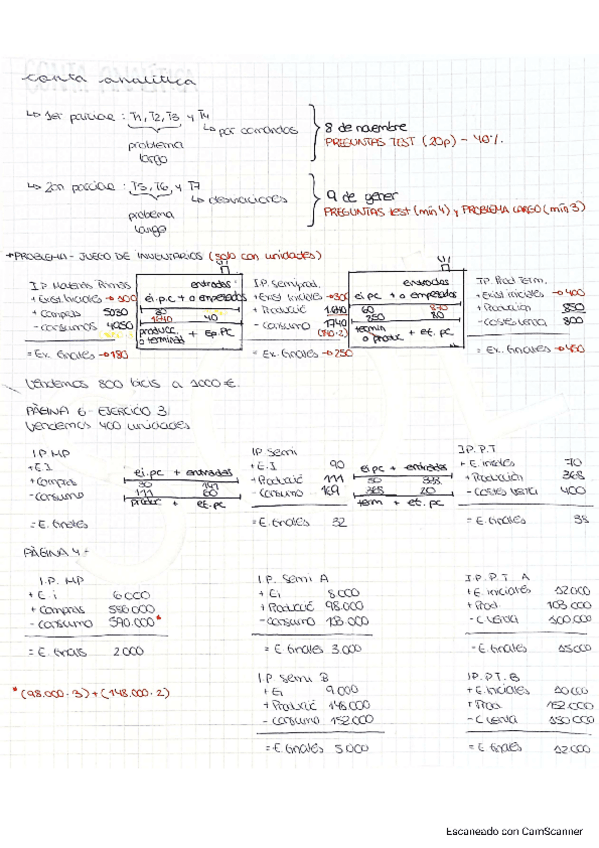 conta analítica
↳ 1er parcial : T1, T2, T3 y T4
↳ por comandos
problema
largo
8 de novembre
PREGUNTAS TEST (20p) - 40%.
↳ 2on parcial : T5, T6, y T7
↳ desviaciones
problema
largo
9 de gener
PREGUNTAS test (mín 4) y PROBLEMA LARGO (mín 3)
PROBLEMA - JUEGO DE INVENTARIOS (solo con unidades)
I.P Materias Primas
+ Exist. Iniciales → 300
+ compras 5030
- consumos 4050
= Ex. finales → 180
entradas
ei.pc + o empezados
40
produce.
o terminados + Ep.PC
I.P. semiprod.
+ Exist Iniciales → 300
+ Producció
- consumo 1740
= Ex. finales → 250
entradas
ei pc + o empezados
60
250 80
termin
o produc + ef. pc
I.P. Prod Term.
+ Exist iniciales → 400
+ Producción 850
- costes venta 800
= Ex. finales → 450
Vendemos 800 bicis a 1000 €.
PÀGINA 6 - EJERCICIO 3
Vendemos 400 unidades
I.P MP
+ E.I
+ compras
- consumo
= E. finales
ei.pc + entradas
30 141
111 60
produc + ef. pc
IP Semi
+ E.I 90
+ Producció 111
- consumo 169
= E. finales 32
ei pc + entradas
50 338
368 20
term + ef. pc
I.P.P.T
+ E. iniciales 70
+ Producción 368
- costes venta 400
= E. finales 38
PÀGINA 4
I.P. MP
+ E.i 6000
+ compras 586.000
- consumo 590.000*
= E. finals 2000
I.P. Semi A
+ Ei 8000
+ Producció 98.000
- consumo 103.000
= E finales 3.000
I.P.P.T. A
+ E. iniciales 12000
+ Prod. 103 000
- C venta 100.000
= E. finales 15000
*(98.000·3)+(148.000·2)
I.P Semi B
+ Ei 9.000
+ Producció 148.000
- consumo 152.000
= E finales 5.000
I.P.PT.B
+ E. Iniciales 10000
+ Prod 152.000
- C venta 150000
= E finales 12000
Escaneado con CamScanner